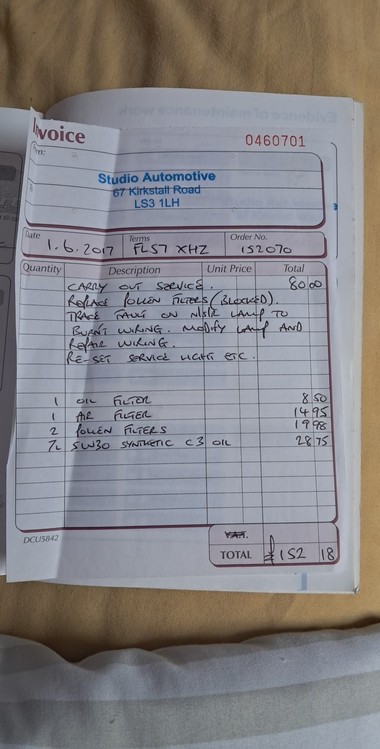 Invoice
0460701
Studio Automotive
67 Kirkstall Road
LS3 1LH
Date Terms Order No.
1.6.2017 FL57 XHZ 152070
Quantity Description Unit Price Total
CARRY OUT SERVICE. 80 00
REPLACE POLLEN FILTERS (BLOCKED).
TRACE FAULT ON N/S/R LAMP TO
BURNT WIRING. MODIFY LAMP AND
REPAIR WIRING.
RE-SET SERVICE LIGHTS ETC.
1 OIL FILTER 8 50
1 AIR FILTER 14 95
2 POLLEN FILTERS 19 98
7L 5W30 SYNTHETIC C3 OIL 28 75
VAT.
DCU5842
TOTAL £152 18